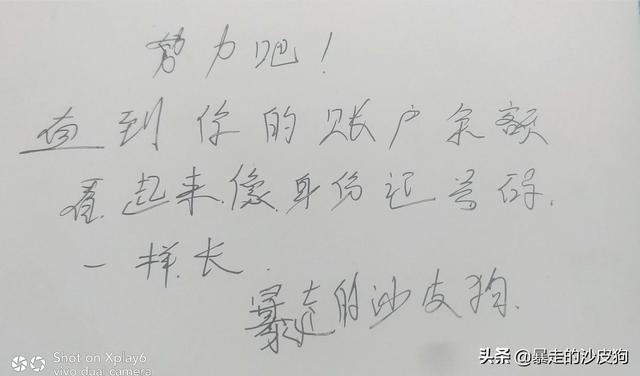 努力吧！
直到你的账户余额
看起来像身份证号码
一样长.
暴走的沙皮狗.
Shot on Xplay6
vivo dual camera
头条 @暴走的沙皮狗